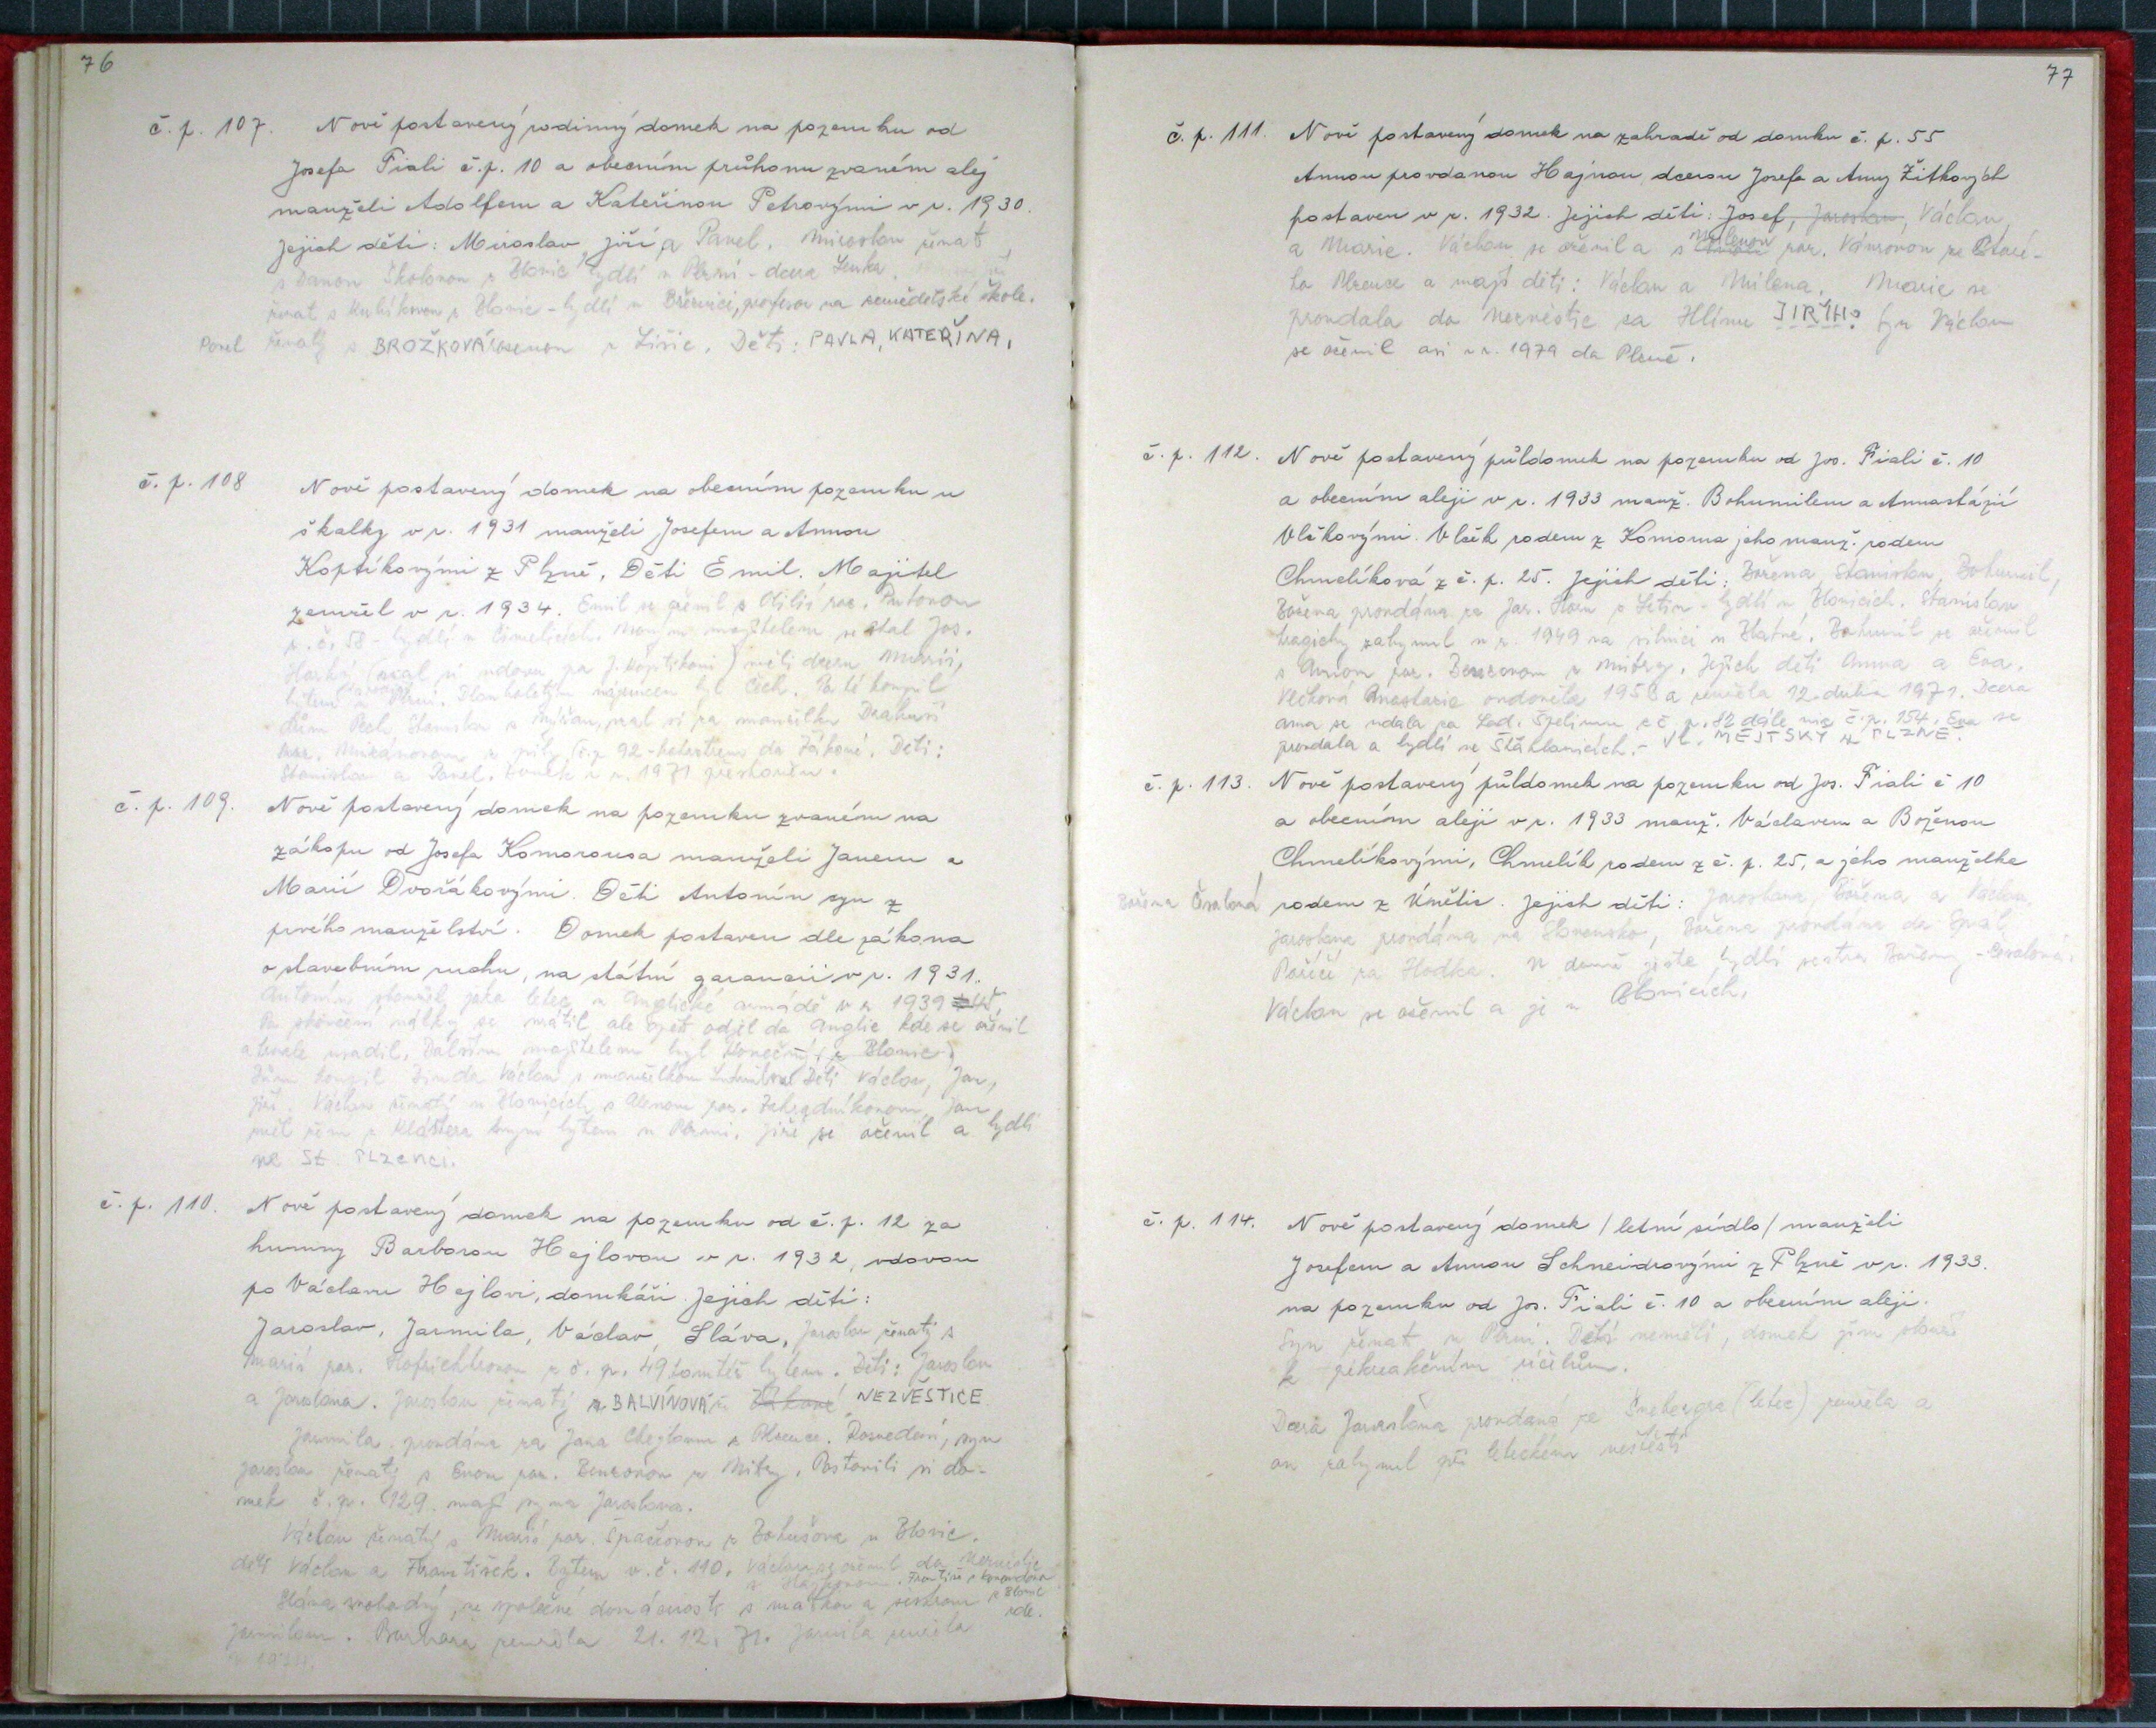 76
č. p. 107. Nově postavený rodinný domek na pozemku od
Josefa Fiali č. p. 10 a obecním průhonu zvaném alej
manželi Adolfem a Kateřinou Petrovými v r. 1930.
Jejich děti: Miroslav, Jiří a Pavel. Miroslav ženat
s Danou Školovou z Blovic bydlí v Plzni - dcera Lenka.
ženat s Kubíkovou z Blovic - bydlí v Březnici, profesor na zemědělské škole.
Pavel ženatý s BROŽKOVÁ z Lišic. Děti: PAVLA, KATEŘINA.
č. p. 108 Nově postavený domek na obecním pozemku u
skalky v r. 1931 manželi Josefem a Annou
Koptíkovými z Plzně. Děti Emil. Majitel
zemřel v r. 1934. Emil se oženil s Otilií roz.
z č. 58 - bydlí v Čimelicích. Novým majitelem se stal Jos.
Horký (vzal si vdovu po J. Koptíkovi) měli dceru Marii,
bytem v Plzni. Dlouholetým nájemcem byl Cích. Poté koupil
dům Pech Stanislav z vzal si za manželku Drahuši
roz. z pily čp 92 - do Zákoné. Děti:
Stanislav a Pavel. Domek v r. 1971 přestavěn.
č. p. 109. Nově postavený domek na pozemku zvaném na
zákopu od Josefa Komorousa manželi Janem a
Marií Dvořákovými. Děti Antonín syn z
prvého manželství. Domek postaven dle zákona
o stavebním ruchu, na státní garancii v r. 1931.
Antonín sloužil jako letec v Anglické armádě v r. 1939
Po skončení války se vrátil, ale opět odjel do Anglie kde se oženil
a trvale usadil. Dalším majitelem byl Konečný (z Blovic)
Dům koupil Zinda Václav s manželkou Ludmilou Děti Václav, Jan,
Jiří. Václav ženatý v Blovicích s Alenou roz. Zahradníkovou, Jan
měl ženu z Kláštera nyní bytem v Plzni. Jiří se oženil a bydlí
ve St. PLZENCI.
č. p. 110. Nově postavený domek na pozemku od č. p. 12 za
humny Barborou Hejlovou v r. 1932, vdovou
po Václavu Hejlovi, domkáři. Jejich děti:
Jaroslav, Jarmila, Václav, Sláva, Jaroslav ženatý s
Marií roz. Hofrichtrovou z č. p. 49 tamtéž bytem. Děti: Jaroslav
a Jaroslava. Jaroslav ženatý s BALVÍNOVÁ NEZVĚSTICE
Jarmila provdána za Jana z Plzence. Rozvedení, syn
Jaroslav ženatý s Evou roz. Benzovou z Mítky. Postavili si do-
mek č. p. 129. mají syna Jaroslava.
Václav ženatý s Marií roz. Špačkovou z Bohušova u Blovic.
děti Václav a František. Bytem v č. 110. Václav se oženil do Nezvěstic
Sláva svobodný, ve společné domácnosti s matkou a sestrou
Jarmilou. Barbora zemřela 21. 12. 71. Jarmila zemřela
77
č. p. 111. Nově postavený domek na zahradě od domku č. p. 55
Annou provdanou Hájnou, dcerou Josefa a Anny Žitkových
postaven v r. 1932. Jejich děti: Josef, Jaroslav, Václav
a Marie. Václav se oženil a s Milenou roz. Vávrovou ze Staré-
ho Plzence a mají děti: Václav a Milena. Marie se
provdala do Nezvěstic za Hlínu JIŘÍHO syn Václav
se oženil asi v r. 1979 do Plzně.
č. p. 112. Nově postavený půldomek na pozemku od Jos. Fiali č. 10
a obecním aleji v r. 1933 manž. Bohumilem a Annastázií
Vlčkovými. Vlček rodem z Komorna jeho manž. rodem
Chmelíková z č. p. 25. Jejich děti: Božena, Stanislav, Bohumil,
Božena provdána za Jar. z Letin - bydlí v Blovicích. Stanislav
tragicky zahynul v r. 1949 na silnici u Blatné. Bohumil se oženil
s Annou roz. Benzovou z Mítky. Jejich děti Anna a Eva.
Vlčková Anastazie ovdověla 1958 a zemřela 12. dubna 1971. Dcera
Anna se vdala za Lad. z č. p. 82 dále na č. p. 154. Eva se
provdala a bydlí ve Šťáhlavicích. - VL. MEJTSKÝ Z PLZNĚ.
č. p. 113. Nově postavený půldomek na pozemku od Jos. Fiali č 10
a obecním aleji v r. 1933 manž. Václavem a Boženou
Chmelíkovými, Chmelík rodem z č. p. 25, a jeho manželka
Božena Čvalová rodem z Únětic. Jejich děti: Jaroslava, Božena a Václav.
Jaroslava provdána na Slovensko, Božena provdána do Spál.
Poříčí za Hodka. V domě ještě bydlí sestra Boženy - Čvalová.
Václav se oženil a je v Blovicích.
č. p. 114. Nově postavený domek / letní sídlo / manželi
Josefem a Annou Schneidrovými z Plzně v r. 1933.
na pozemku od Jos. Fiali č. 10 a obecním aleji.
Syn ženat v Plzni. Dětí neměli, domek jim slouží
k rekreačním účelům.
Dcera Jaroslava provdaná za Šnebergra (letec) zemřela a
on zahynul při leteckém neštěstí